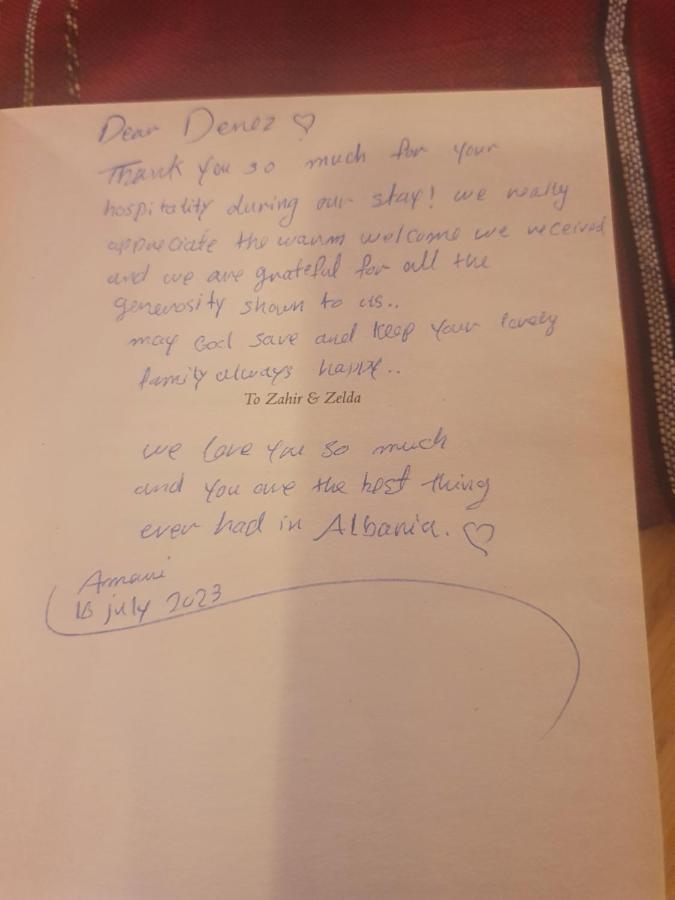 Dear Denez ♡
Thank you so much for your
hospitality during our stay! we really
appreciate the warm welcome we received
and we are grateful for all the
generosity shown to us..
may God save and keep your lovely
family always happy..
To Zahir & Zelda
we love you so much
and you are the best thing
ever had in Albania. ♡
Armani
18 july 2023